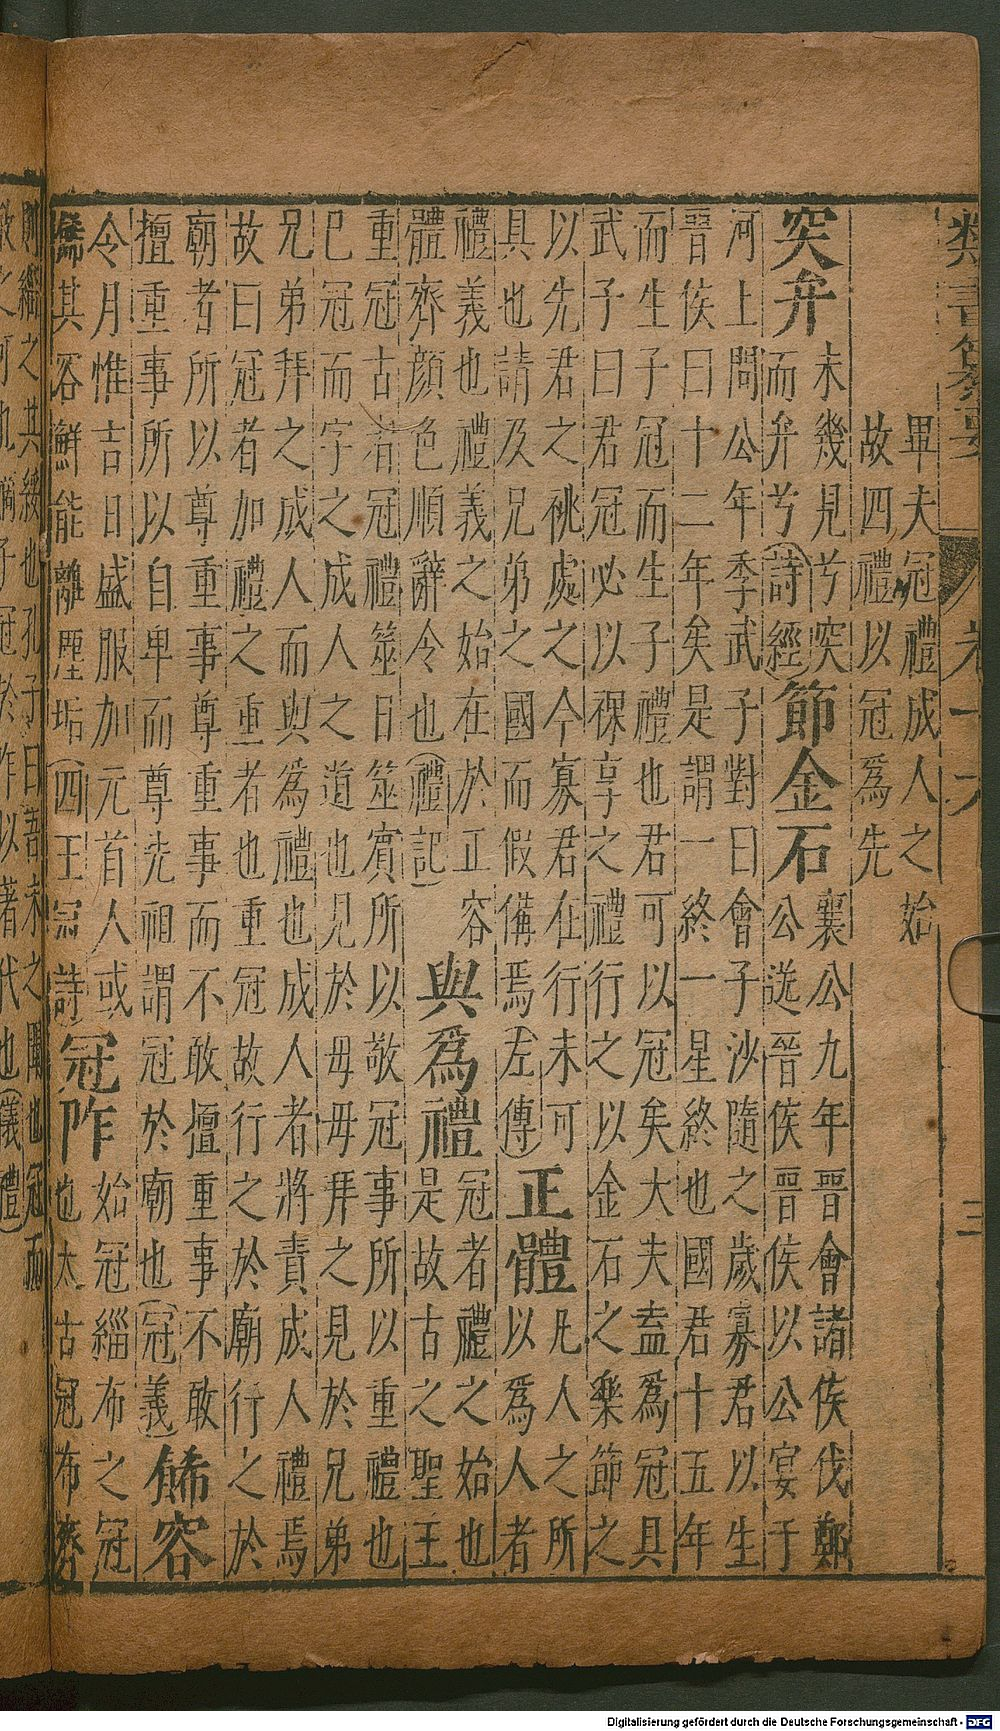 類書纂要 卷十六 三
畢夫冠禮成人之始
故四禮以冠爲先
突弁 未幾見兮突
而弁兮(詩經)
節金石 襄公九年晉會諸侯伐鄭
公送晉侯晉侯以公宴于
河上問公年季武子對曰會子沙隨之歲寡君以生
晉侯曰十二年矣是謂一終一星終也國君十五年
而生子冠而生子禮也君可以冠矣大夫盍爲冠具
武子曰君冠必以祼享之禮行之以金石之樂節之
以先君之祧處之今寡君在行未可
具也請及兄弟之國而假備焉(左傳)
正體 凡人之所
以爲人者
禮義也禮義之始在於正容
體齊顔色順辭令也(禮記)
與爲禮 冠者禮之始也
是故古之聖王
重冠古者冠禮筮日筮賓所以敬冠事所以重禮也
已冠而字之成人之道也見於母母拜之見於兄弟
兄弟拜之成人而與爲禮也成人者將責成人禮焉
故曰冠者加禮之重者也重冠故行之於廟行之於
廟者所以尊重事尊重事而不敢擅重事不敢
擅重事所以自卑而尊先祖謂冠於廟也(冠義)
飾容
令月惟吉日盛服加元首人或
其容鮮能離塵垢(四王冠詩)
冠阼 始冠緇布之冠
也太古冠布齊
則緇之其緌也孔子曰吾未之聞也冠而
敝之可也嫡子冠於阼以著代也(儀禮)
Digitalisierung gefördert durch die Deutsche Forschungsgemeinschaft - DFG